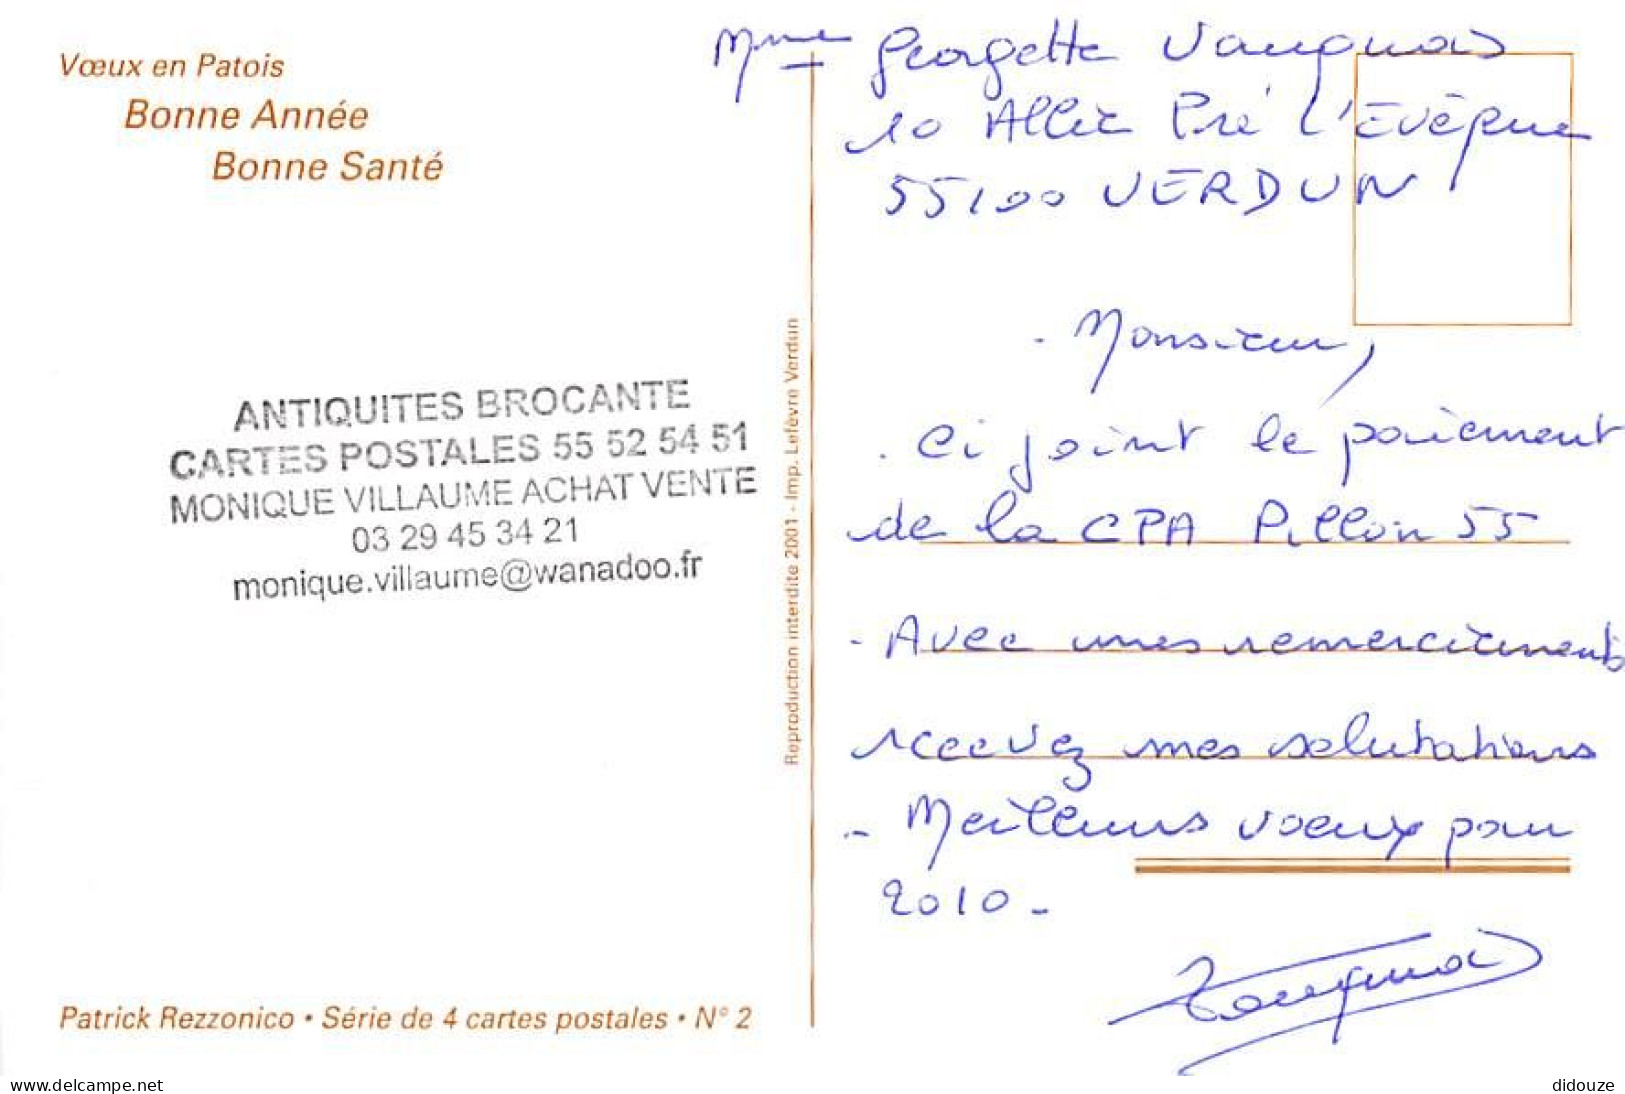 Vœux en Patois
Bonne Année
Bonne Santé
ANTIQUITES BROCANTE
CARTES POSTALES 55 52 54 51
MONIQUE VILLAUME ACHAT VENTE
03 29 45 34 21
monique.villaume@wanadoo.fr
Patrick Rezzonico • Série de 4 cartes postales • N° 2
Reproduction interdite 2001 - Imp. Lefèvre Verdun
Mme Georgette
10 Allée Pré L'Evêque
55100 VERDUN
- Monsieur,
. Ci joint le paiement
de la CPA Pillon 55
- Avec mes remerciements
recevez mes salutations
- Meilleurs voeux pour
2010 -
www.delcampe.net
didouze